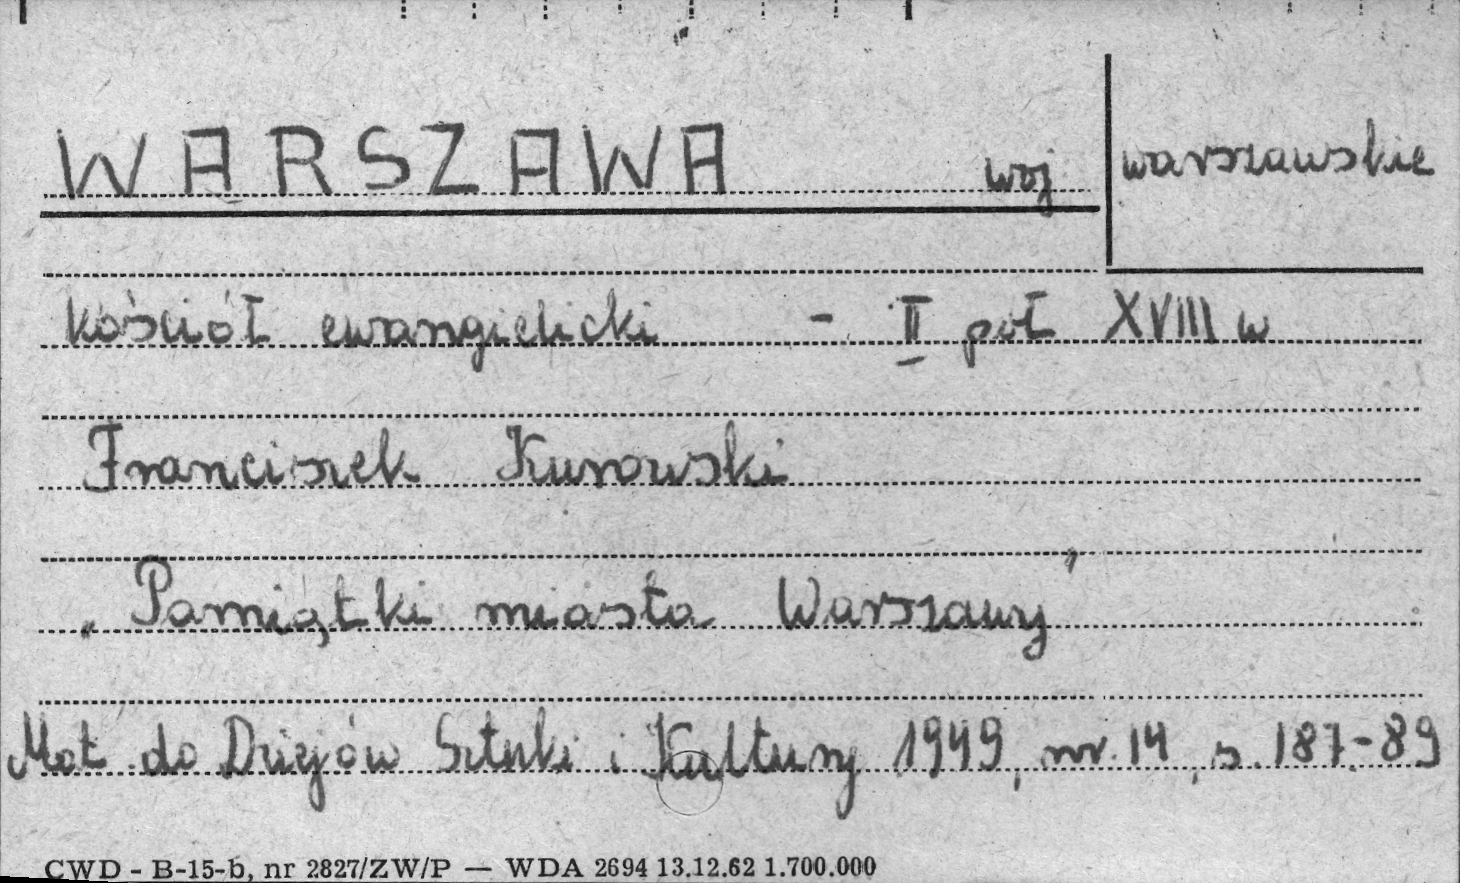 WARSZAWA woj warszawskie
kościół ewangielicki - II poł XVIII w
Franciszek Kurowski
„Pamiątki miasta Warszawy"
Mat do Dziejów Sztuki i Kultury 1949, nr. 14, s. 187-89
CWD - B-15-b, nr 2827/ZW/P — WDA 2694 13.12.62 1.700.000